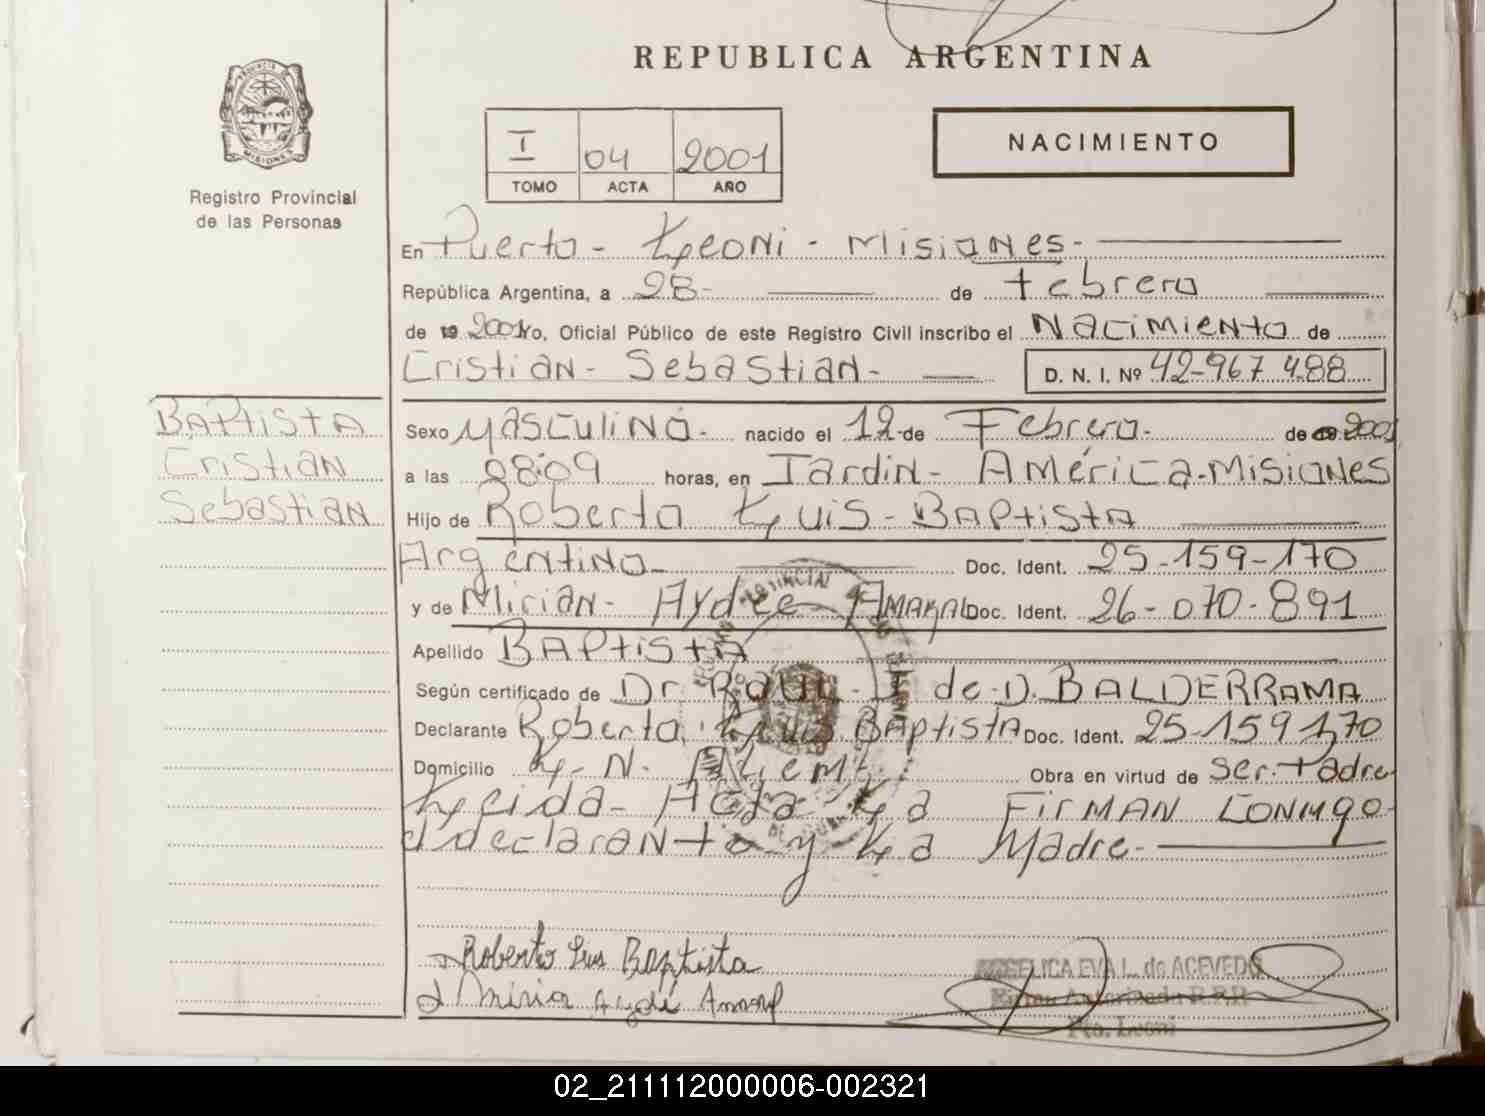 REPUBLICA ARGENTINA
PROVINCIA DE
MISIONES
Registro Provincial
de las Personas
I 04 2001
TOMO ACTA AÑO
NACIMIENTO
En Puerto - Leoni - Misiones -
República Argentina, a 28 - de Febrero
de 19 2001 Yo, Oficial Público de este Registro Civil inscribo el Nacimiento de
Cristian - Sebastian - D. N. I. Nº 42-967 488
Baptista
Cristian
Sebastian
Sexo Masculino - nacido el 12 de Febrero - de 19 2001
a las 08:09 horas, en Jardin - América - Misiones
Hijo de Roberto Luis - Baptista
Argentino - Doc. Ident. 25-159-170
y de Mirian - Aydee Amaral Doc. Ident. 26-070-891
Apellido Baptista
Según certificado de Dr. Raul - I de D. BALDERRAMA
Declarante Roberto Luis Baptista Doc. Ident. 25-159 170
Domicilio L - N. Alem - Obra en virtud de Ser - Padre
Leida - Acta - La Firman conmigo -
el declaranto y La Madre -
Roberto Luis Baptista
Miria Aydé
ANGELICA EVA L. de ACEVEDO
Firma Autorizada R.P.P.
Pto. Leoni
02_211112000006-002321